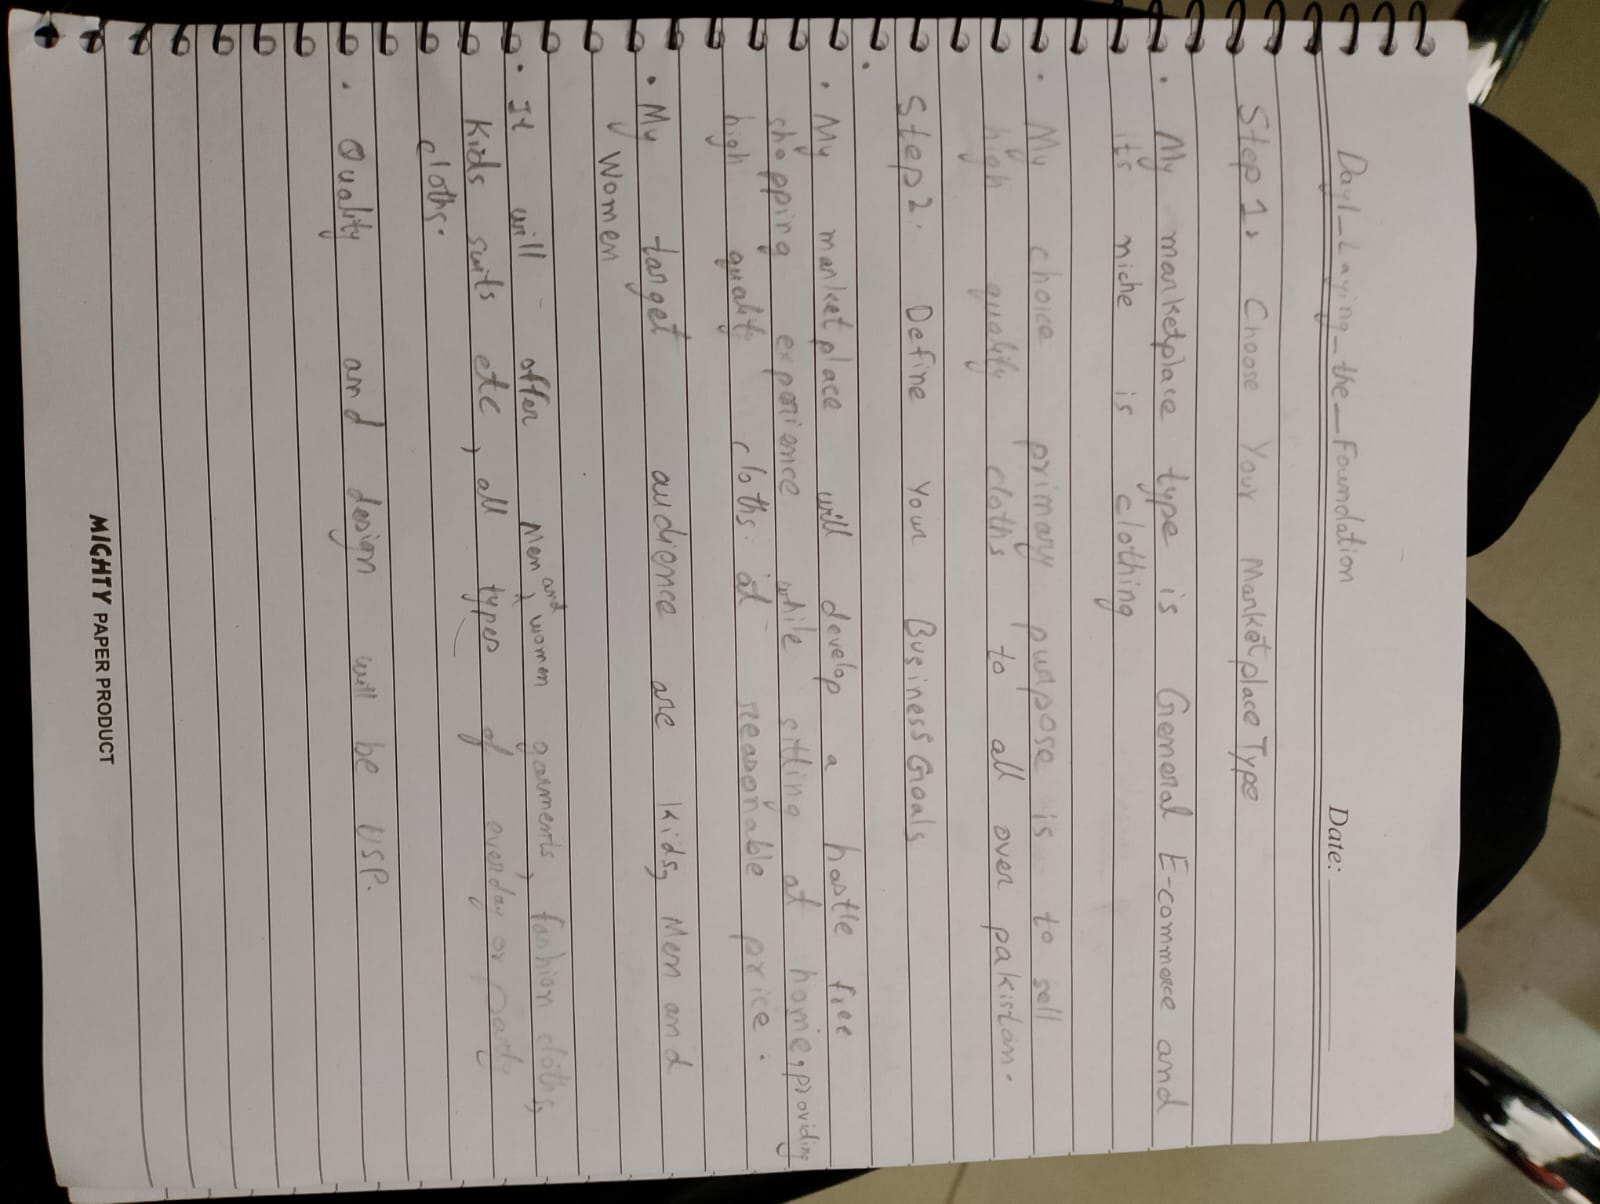 Day1_Laying_the_Foundation
Date:
Step 1: Choose Your Marketplace Type
• My marketplace type is General E-commerce and
it's niche is clothing
• My choice primary purpose is to sell
high quality cloths to all over pakistan.
Step 2: Define Your Business Goals
• My marketplace will develop a hastle free
shopping experience while sitting at home, providing
high quality cloths at reasonable price.
• My target audience are Kids, Men and
Women
• It will offer Men and women garments, fashion cloths,
Kids suits etc, all types of everday or party
cloths.
• Quality and design will be USP.
MIGHTY PAPER PRODUCT